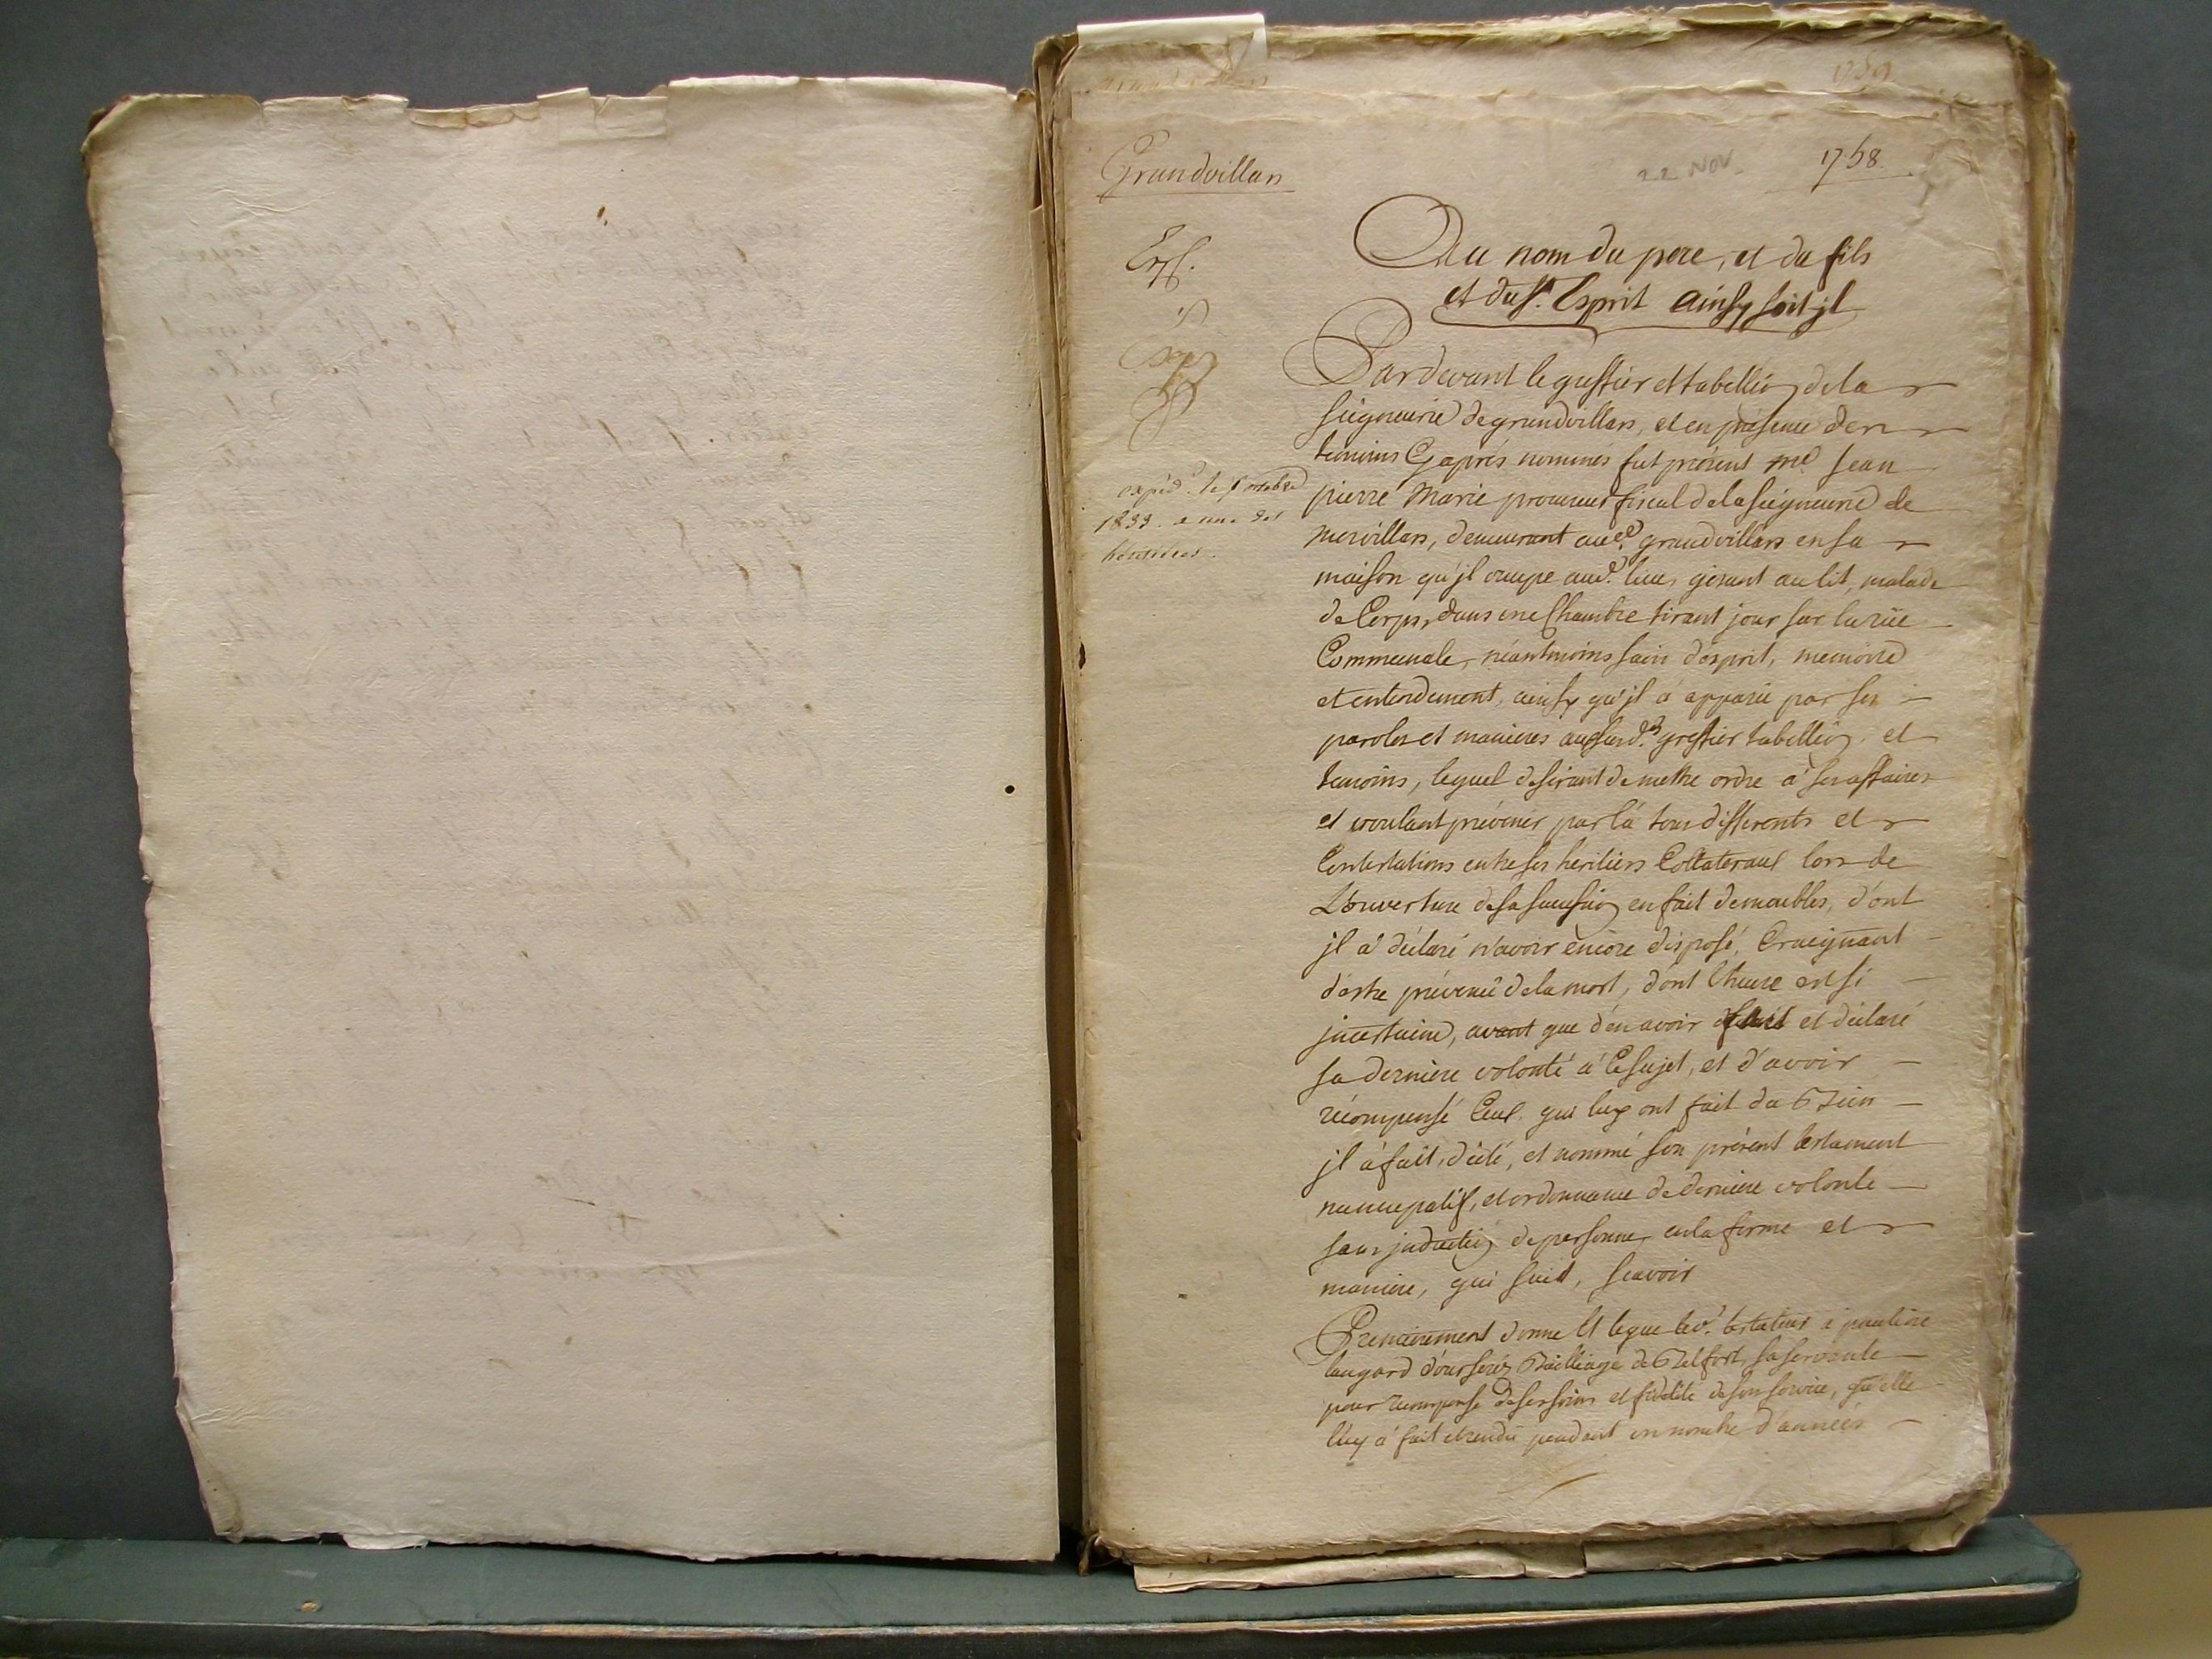 Grandvillars
1759
Grandvillars
22 NOV.
1758.
Exp.
expéd. le octobre
1833. a une des
héritières.
Au nom du pere, et du fils
et du St. Esprit ainsy soit jl
Pardevant le greffier et tabellion de la
seigneurie de grandvillars, et en présence des
temoins Cy après nommés fut présent me. Jean
pierre Marie procureur fiscal de la seigneurie de
morvillars, demeurant aud. grandvillars en sa
maison qu'jl occupe aud. lieu, gisant au lit, malade
de Corps, dans une Chambre tirant jour sur la rüe
Communale, néantmoins sain d'esprit, memoire
et entendement, ainsy qu'jl à apparü par ses
paroles et manieres auxsusd. greffier tabellion et
temoins, lequel desirant de mettre ordre à ses affaires
et voulant prévenir par là tous differents et
Contestations entre ses heritiers Collateraux lors de
L'ouverture de sa succession en fait de meubles, d'ont
jl à déclaré n'avoir encore disposé, Craignant
d'estre prévenü de la mort, d'ont l'heure est si
jncertaine, avant que d'en avoir et déclaré
sa derniere volonté à Ce sujet, et d'avoir
récompensé Ceux qui luy ont fait du Bien
jl à fait, dicté, et nommé son présent testament
nuncupatif, et ordonnance de derniere volonte
sans jnduction de personne, en la forme et
maniere, qui suit, scavoir
Premierement donne Et legue led. testateur à pauline
laugard d'oursoux Bailliage de Belfort, sa servante
pour recompense de ses soins et fidelité de son service, qu'elle
luy à fait et rendü pendant un nombre d'années